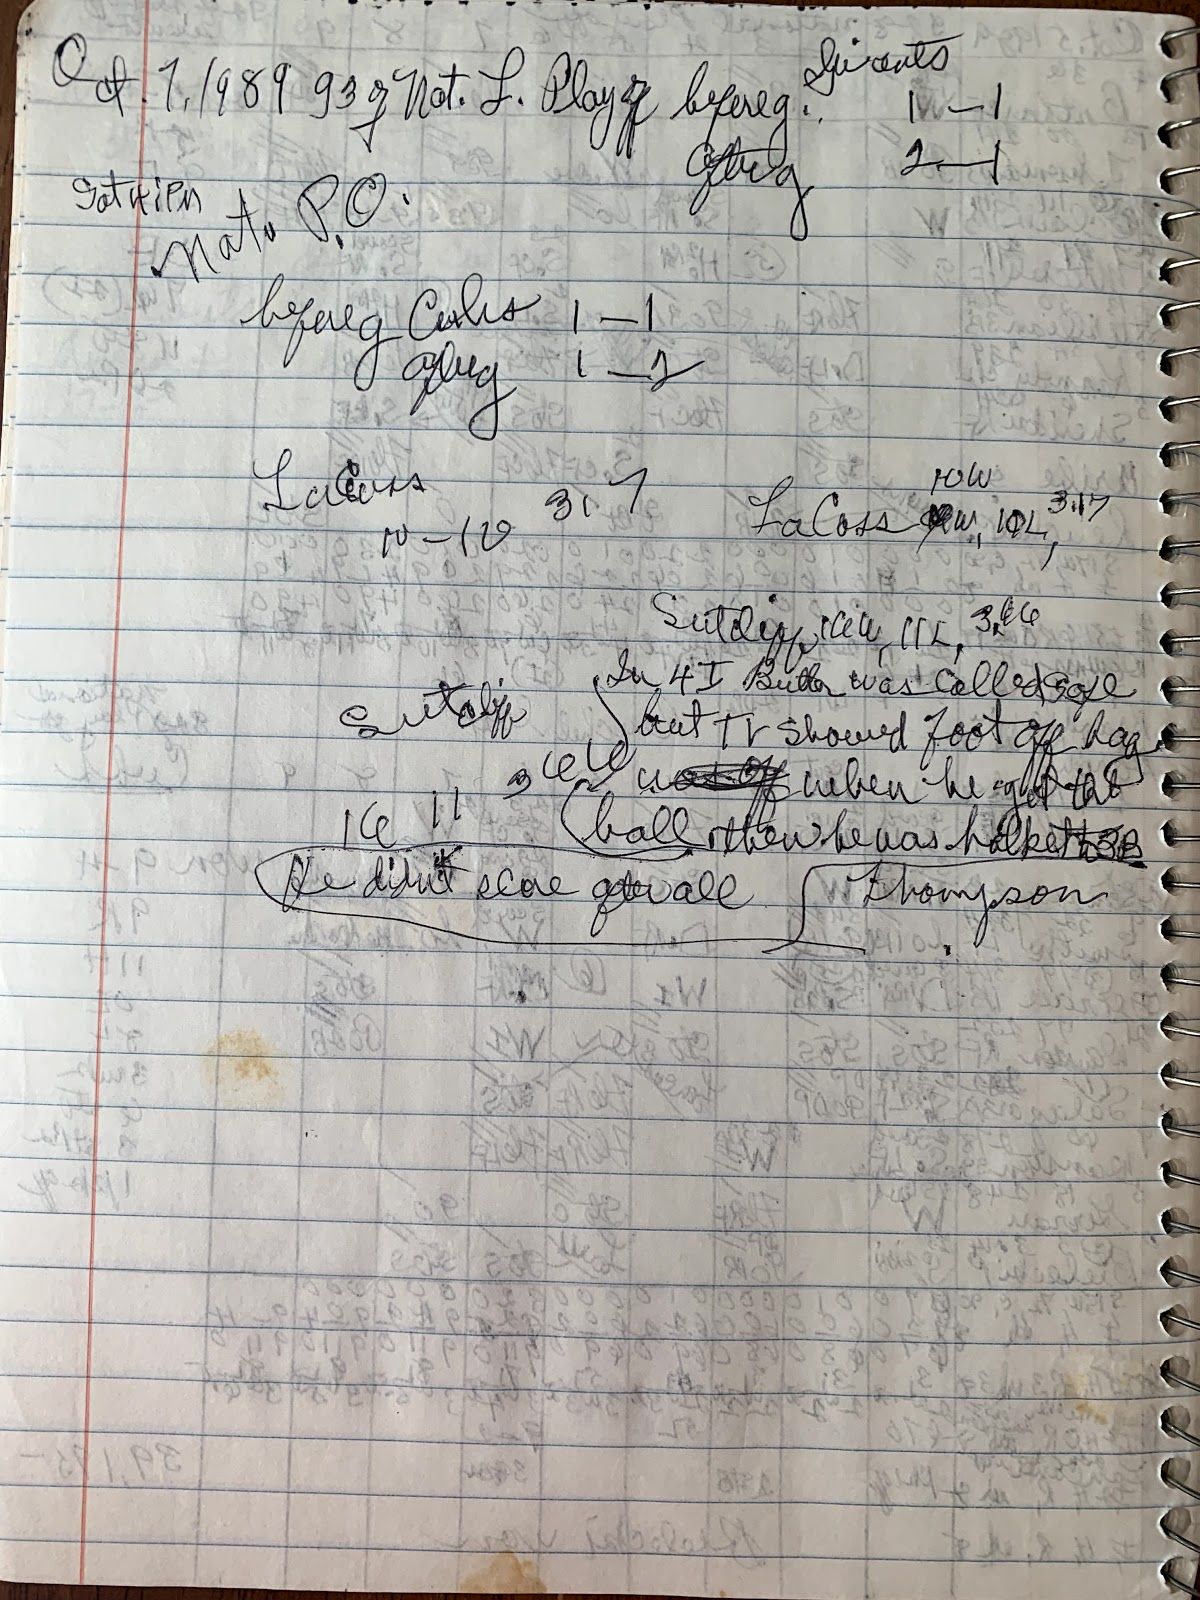 Oct. 7, 1989 93 g Nat. L. Playoff before g. Giants 1-1
after g 2-1
Nat. P.O.
before g Cubs 1-1
after g 1-2
LaCoss 3.17
10-10
LaCoss 10W, 10L, 3.17
Sutcliff, 16W, 11L, 3.66
Sutcliff
16 11 3.66
In 4 I Butler was called safe
but TV showed foot off bag
when he got the
ball, then he was balked to 3B
He didn't score after all
Thompson